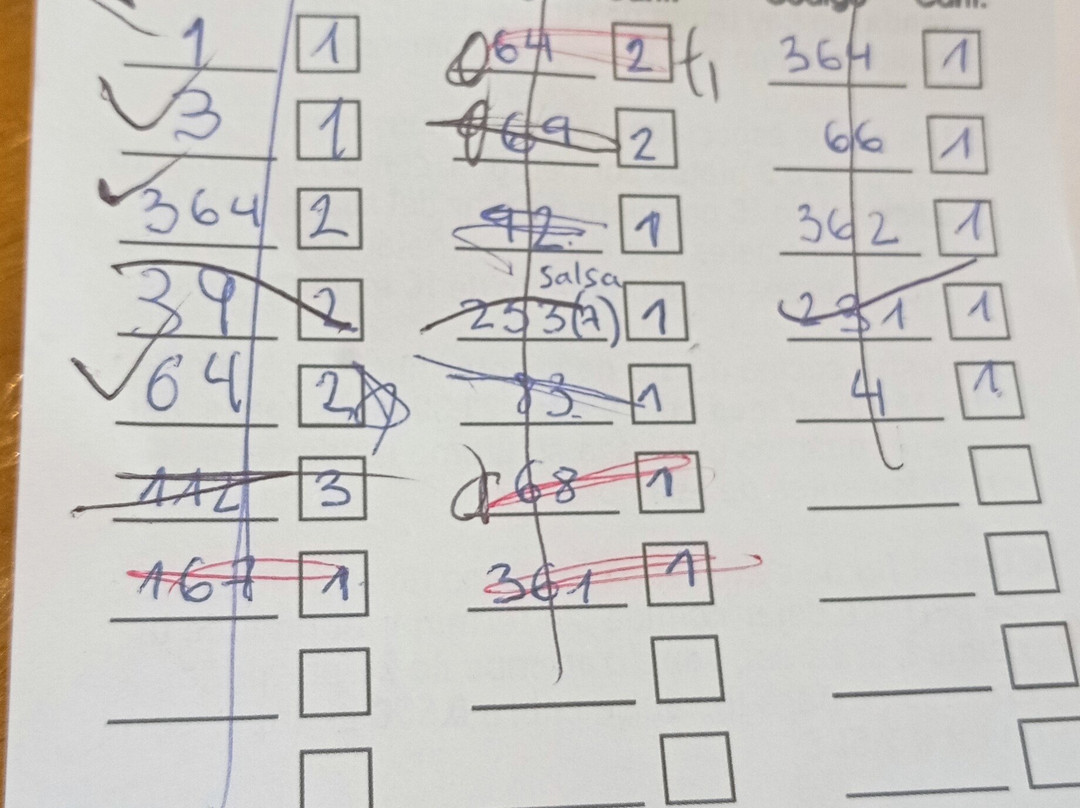 1 1
3 1
364 2
39 2
64 2
112 3
167 1
64 2 +1
69 2
92 1
salsa
253(7) 1
83 1
68 1
361 1
364 1
66 1
362 1
231 1
4 1